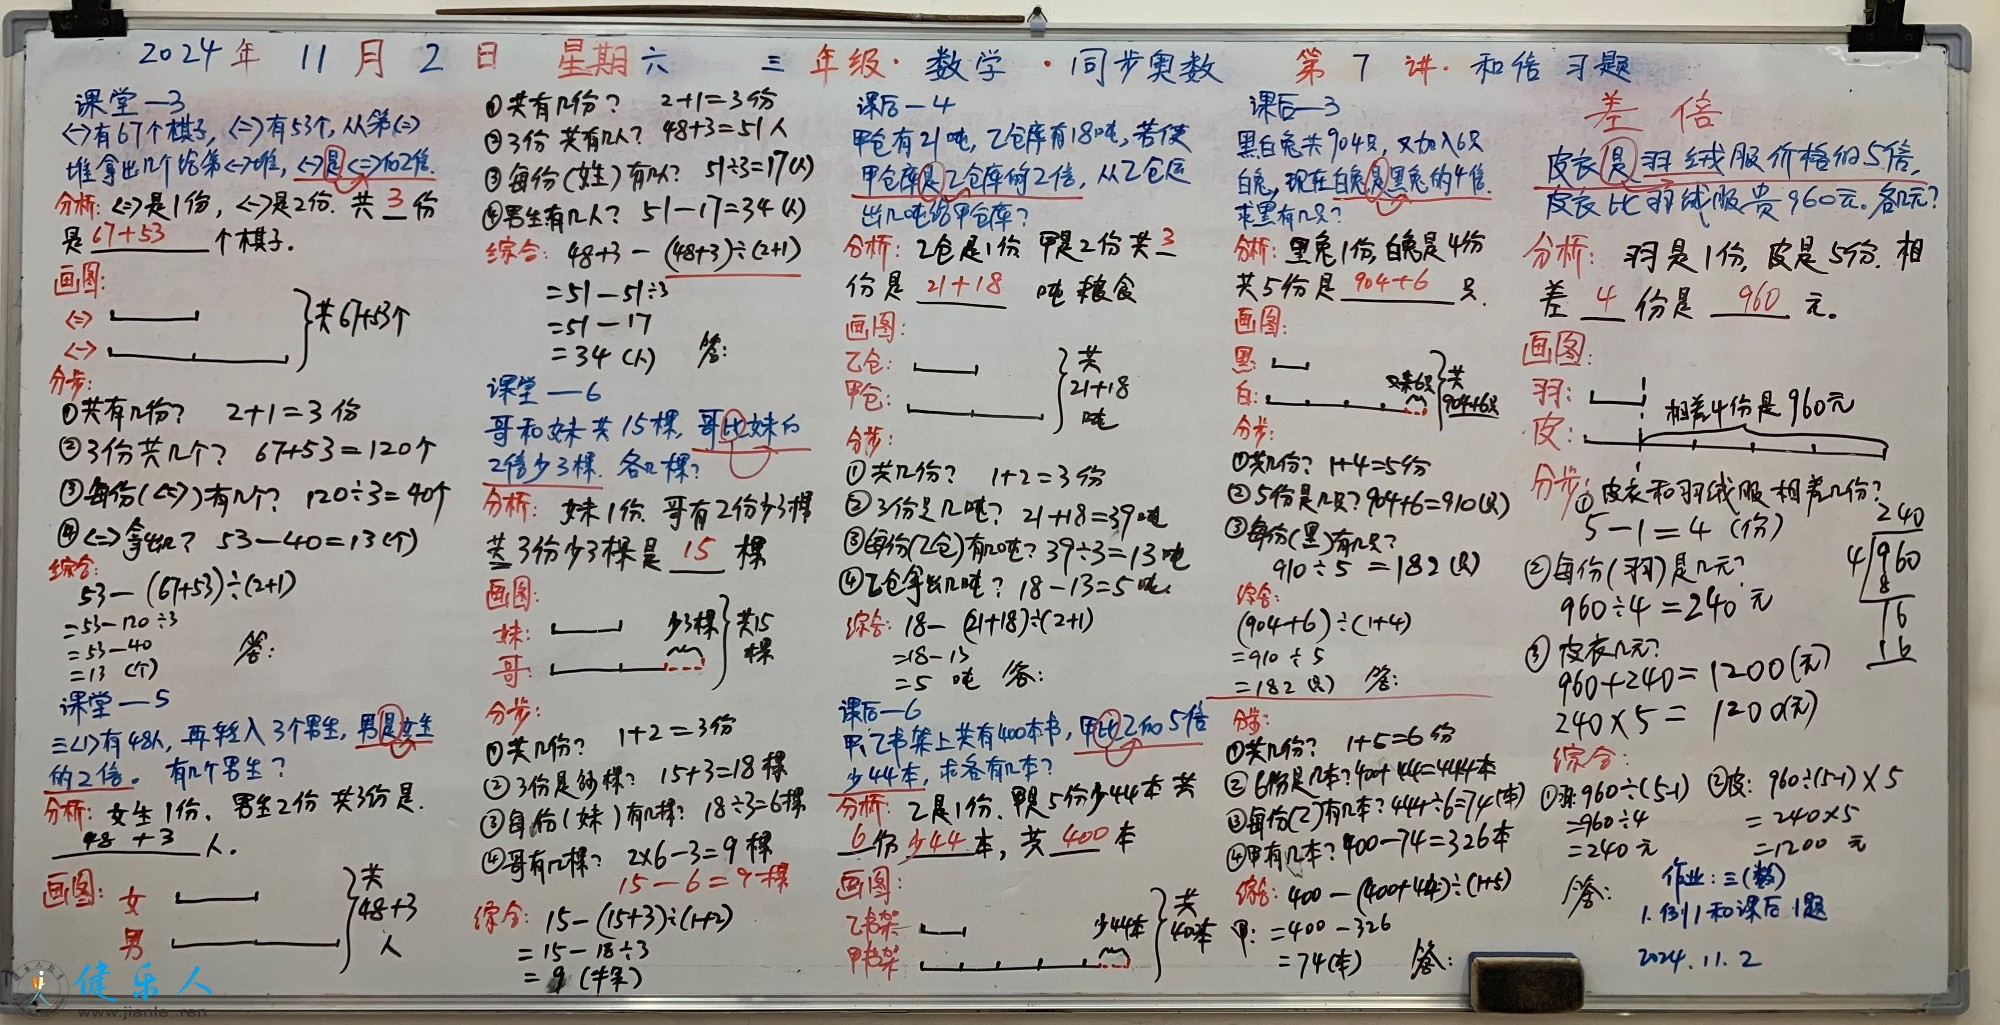 2024年 11月2日 星期六 三年级·数学·同步奥数 第7讲·和倍习题
课堂—3
<一>有67个棋子,<二>有53个,从第<二>
堆拿出几个给第<一>堆,<一>是<二>的2倍.
分析:<二>是1份,<一>是2份.共3份
是67+53个棋子.
画图:
<二>
<一>
共67+53个
分步:
①共有几份? 2+1=3份
②3份共几个? 67+53=120个
③每份(<二>)有几个? 120÷3=40个
④<二>拿出几? 53-40=13(个)
综合:
53-(67+53)÷(2+1)
=53-120÷3
=53-40
=13(个) 答:
课堂—5
三<1>有48人,再转入3个男生,男是女生
的2倍。有几个男生?
分析:女生1份.男生2份 共3份是.
48+3人.
画图:
女
男
共
48+3
人
①共有几份? 2+1=3份
②3份共有几人? 48+3=51人
③每份(女生)有几人? 51÷3=17(人)
④男生有几人? 51-17=34(人)
综合:48+3-(48+3)÷(2+1)
=51-51÷3
=51-17
=34(人) 答:
课堂—6
哥和妹共15棵,哥比妹的
2倍少3棵.各几棵?
分析:妹1份.哥有2份少3棵
共3份少3棵是15棵
画图:
妹:
哥:
少3棵
共15
棵
分步:
①共几份? 1+2=3份
②3份是几棵? 15+3=18棵
③每份(妹)有几棵? 18÷3=6棵
④哥有几棵? 2×6-3=9棵
15-6=9棵
综合:15-(15+3)÷(1+2)
=15-18÷3
=9(棵)
课后—4
甲仓有21吨,乙仓库有18吨,若使
甲仓库是乙仓库的2倍,从乙仓运
出几吨给甲仓库?
分析:乙仓是1份 甲是2份共3
份是21+18吨粮食
画图:
乙仓:
甲仓:
共
21+18
吨
分步:
①共几份? 1+2=3份
②3份是几吨? 21+18=39吨
③每份(乙仓)有几吨? 39÷3=13吨
④乙仓拿出几吨? 18-13=5吨.
综合:18-(21+18)÷(2+1)
=18-13
=5吨 答:
课后—6
甲、乙书架上共有400本书,甲比乙的5倍
少44本,求各有几本?
分析:乙是1份.甲是5份少44本 共
6份少44本,共400本
画图:
乙书架
甲书架
少44本
共
400本
课后—3
黑白兔共904只,又加入6只
白兔,现在白兔是黑兔的4倍.
求黑有几只?
分析:黑兔1份,白兔是4份
共5份是904+6只.
画图:
黑:
白:
又来6只
共
904+6只
分步:
①共几份? 1+4=5份
②5份是几只? 904+6=910(只)
③每份(黑)有几只?
910÷5=182(只)
综合:
(904+6)÷(1+4)
=910÷5
=182(只) 答:
分步:
①共几份? 1+5=6份
②6份是几本? 400+44=444本
③每份(乙)有几本? 444÷6=74(本)
④甲有几本? 400-74=326本
综合:400-(400+44)÷(1+5)
甲:=400-326
=74(本) 答:
差倍
皮衣是羽绒服价格的5倍,
皮衣比羽绒服贵960元。各几元?
分析:羽是1份,皮是5份.相
差4份是960元。
画图:
羽:
皮:
相差4份是960元
分步:
①皮衣和羽绒服相差几份?
5-1=4(份)
②每份(羽)是几元?
960÷4=240元
③皮衣几元?
960+240=1200(元)
240×5=1200(元)
240
4 960
8
16
16
综合:
①羽:960÷(5-1)
=960÷4
=240元
②皮:960÷(5-1)×5
=240×5
=1200元
答:
作业:三(数)
1.例1和课后1题
2024.11.2
健乐人
www.jianle.ren